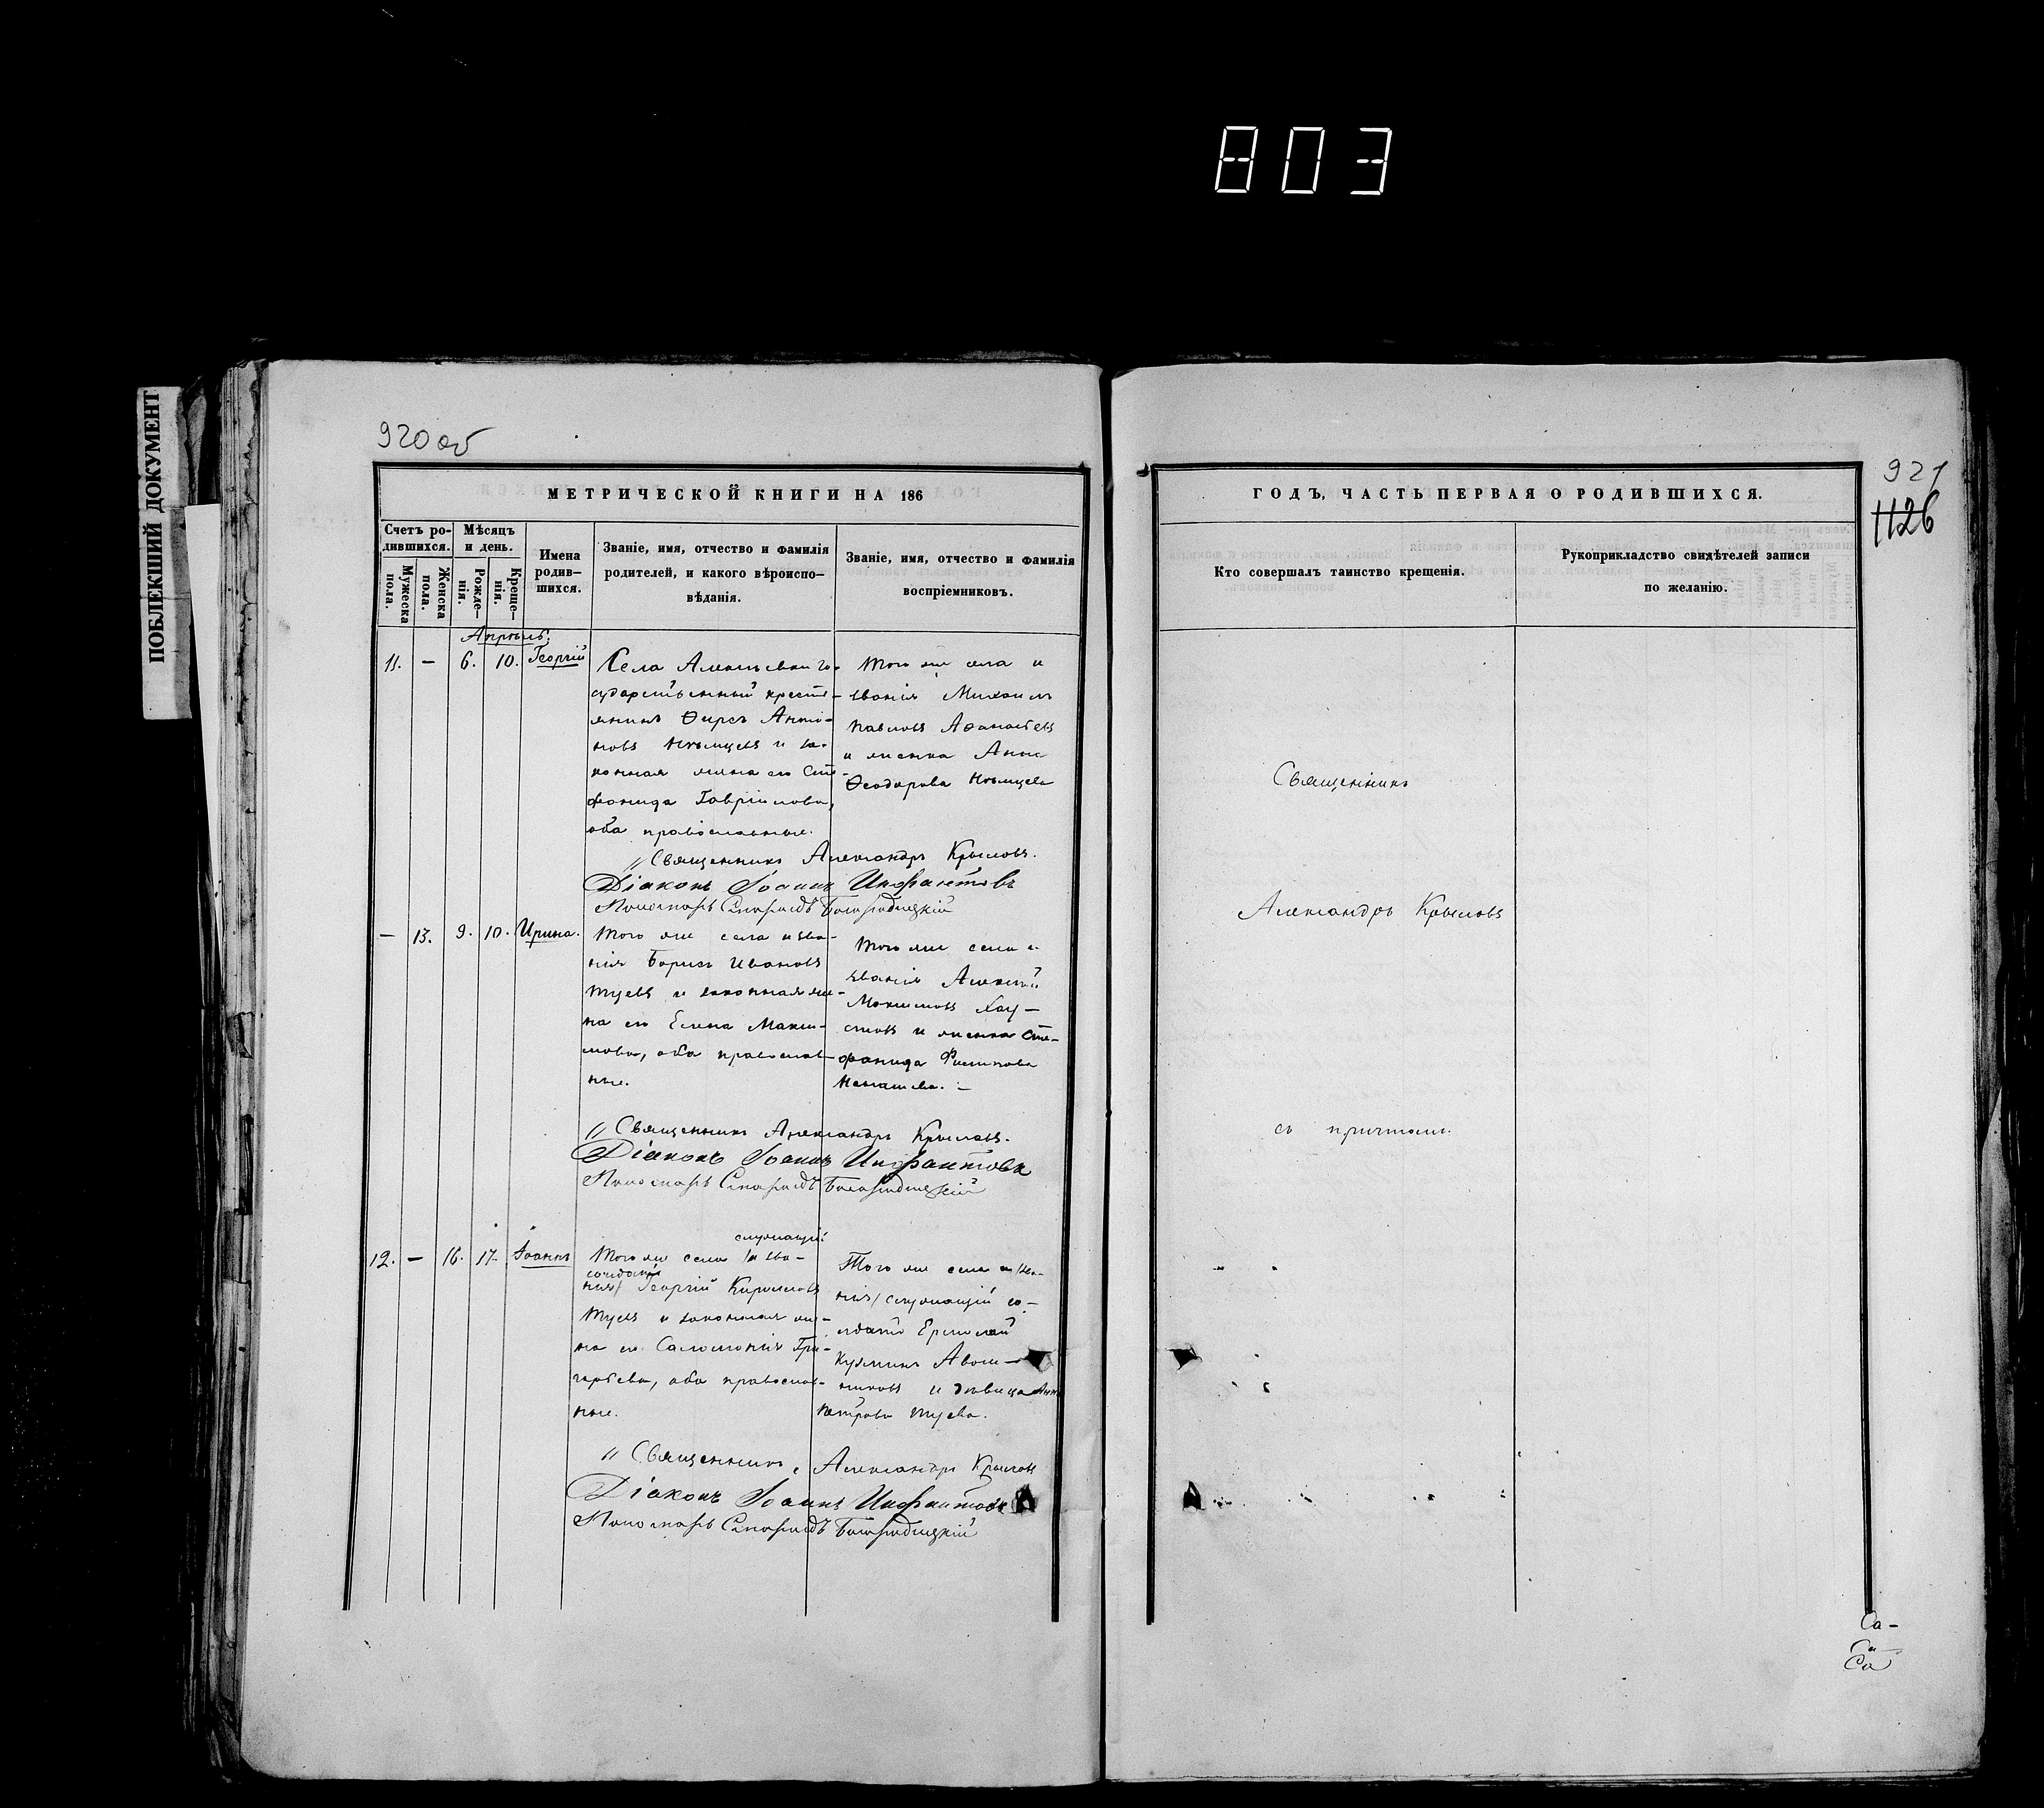 803
ПОБЛЕКШИЙ ДОКУМЕНТ
920 об
МЕТРИЧЕСКОЙ КНИГИ НА 186
Счетъ ро-
дившихся.
Мужеска
пола.
Женска
пола.
Мѣсяцъ
и день.
Рожде-
нія.
Креще-
нія.
Имена
родив-
шихся.
Званіе, имя, отчество и фамилія
родителей, и какого вѣроиспо-
вѣданія.
Званіе, имя, отчество и фамилія
воспріемниковъ.
Апрѣль
11. — 6. 10. Георгій
Села го-
сударственный кресть-
янинъ Ѳирсъ Анто-
новъ Нѣмцевъ и за-
конная жена его Сте-
фанида Гавріилова,
оба православные.
Того же села и
званія Михаилъ
Павловъ Аѳанасьевъ
и женка Анна
Ѳеодорова Нѣмцева
Священникъ Александръ Крыловъ.
Діаконъ Іоаннъ Инфантовъ
Пономарь Спиридъ Богородицкій
— 13. 9. 10. Ирина.
Того же села и зва-
нія Борисъ Ивановъ
Туевъ и законная же-
на его Елена Макси-
мова, оба православ-
ные.
Того же села и
званія Алексѣй
Максимовъ Хау-
стовъ и женка Сте-
фанида Филипова
Священникъ Александръ Крыловъ.
Діаконъ Іоаннъ Инфантовъ
Пономарь Спиридъ Богородицкій
12. — 16. 17. Іоаннъ
служащій
Того же села /и зва-
солдатъ
нія/ Георгій Кириловъ
Туевъ и законная же-
на его Саломонія Гри-
горьева, оба православ-
ные.
Того же села и /зва-
нія/ служащій со-
лдатъ Ермолай
Кузминъ
и дѣвица Анна
Петрова Туева.
Священникъ Александръ Крыловъ
Діаконъ Іоаннъ Инфантовъ
Пономарь Спиридъ Богородицкій
921
1126
ГОДЪ, ЧАСТЬ ПЕРВАЯ О РОДИВШИХСЯ.
Кто совершалъ таинство крещенія.
Рукоприкладство свидѣтелей записи
по желанію.
Священникъ
Александръ Крыловъ
съ причтомъ.
Са-
Са